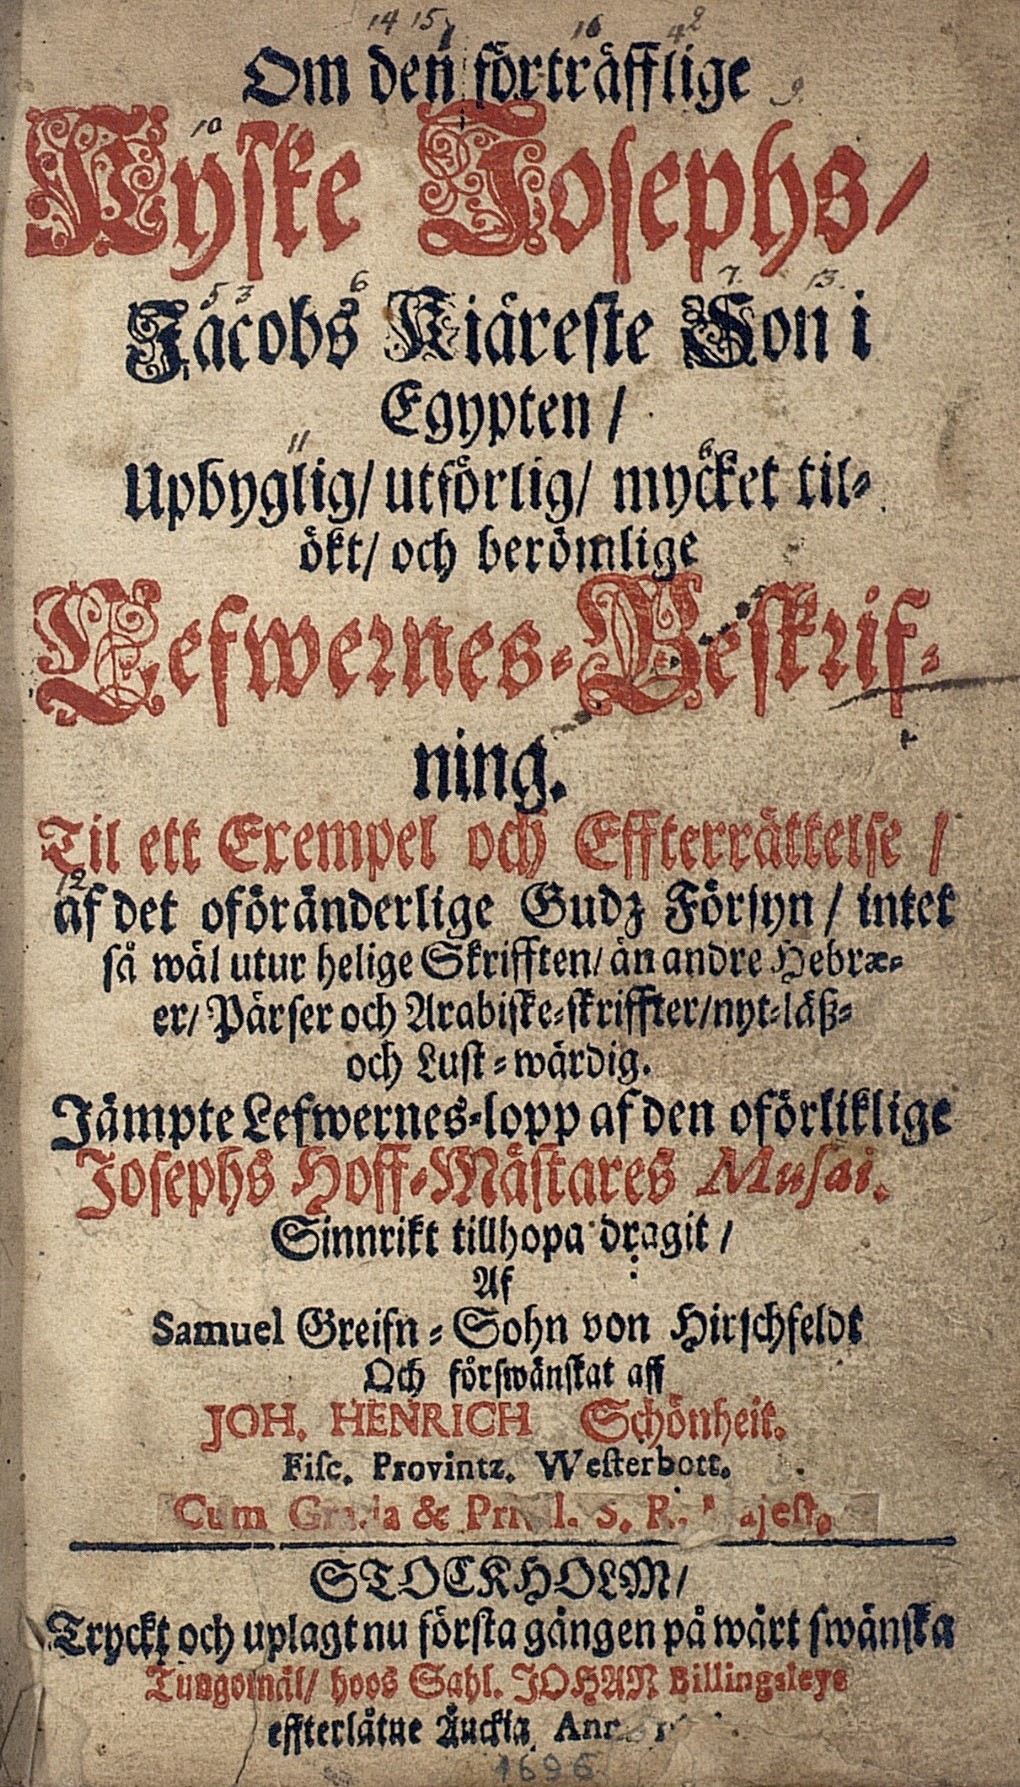 14 15 7 16 4 2
Om den förträfflige
9.
10
Kyske Josephs/
5 3 6 7. 13.
Jacobs Kiäreste Son i
Egypten/
11
Upbyglig/ utförlig/ mycket til-
ökt/ och berömlige
Lefwernes-Beskrif-
ning.
Til ett Exempel och Effterrättelse/
12
af det oföränderlige Gudz Försyn/ intet
så wäl utur helige Skrifften/ än andre Hebræ-
er/ Pärser och Arabiske-skriffter/ nyt-läß-
och Lust-wärdig.
Jämpte Lefwernes-lopp af den oförliklige
Josephs Hoff-Mästares Musai.
Sinnrikt tillhopa dragit/
Af
Samuel Greifn-Sohn von Hirschfeldt
Och förswänskat aff
JOH. HENRICH Schönheit.
Fisc. Provintz. Westerbott.
Cum & S. R.
STOCKHOLM/
Tryckt och uplagt nu första gången på wårt swänska
Tungomål/ hoos Sahl. JOHAN Billingsleys
effterlåtne Änckia,
1696